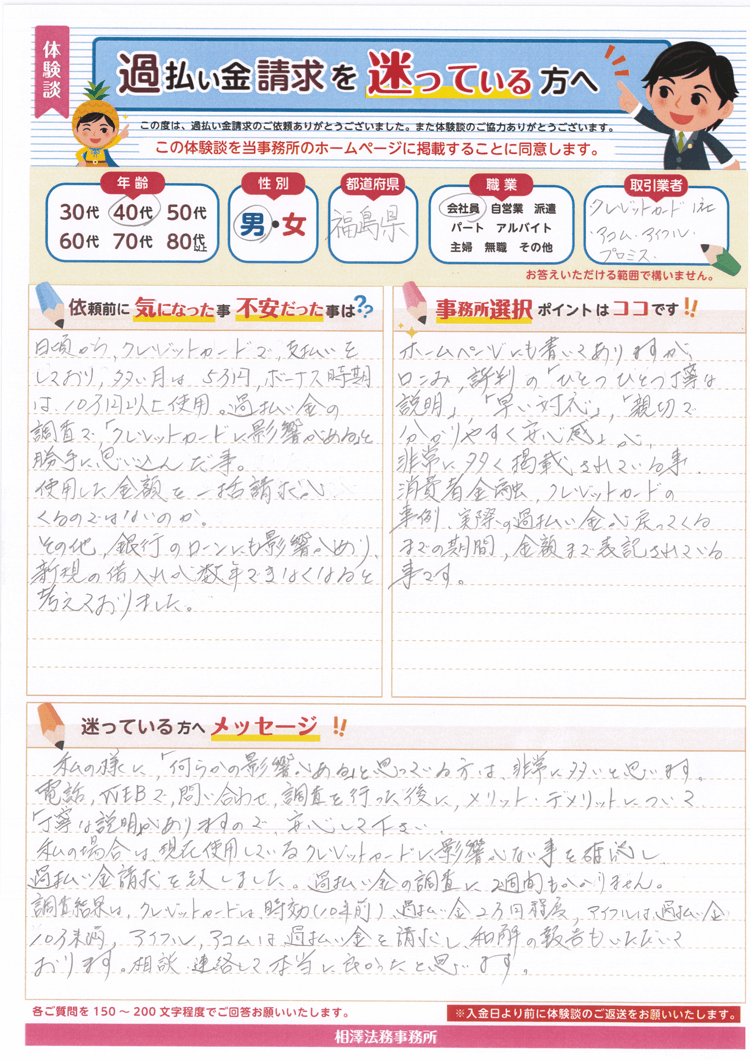 体験談
過払い金請求を迷っている方へ
この度は、過払い金請求のご依頼ありがとうございました。また体験談のご協力ありがとうございます。
この体験談を当事務所のホームページに掲載することに同意します。
年齢
30代 40代 50代
60代 70代 80代以上
性別
男・女
都道府県
福島県
職業
会社員 自営業 派遣
パート アルバイト
主婦 無職 その他
取引業者
クレジットカード 1社
・アコム・アイフル・
プロミス・
お答えいただける範囲で構いません。
依頼前に気になった事不安だった事は??
日頃から、クレジットカードで、支払いを
しており、多い月は、5万円、ボーナス時期
は、10万円以上使用。過払い金の
調査で、「クレジットカードに影響がある」と
勝手に思い込んだ事。
使用した金額を一括請求が
くるのではないのか。
その他、銀行のローンにも影響があり、
新規の借入れが数年できなくなると
考えておりました。
事務所選択ポイントはココです!!
ホームページにも書いてありますが、
口こみ、評判の「ひとつひとつ丁寧な
説明」、「早い対応」、「親切で
分かりやすく安心感」が、
非常に多く掲載されている事。
消費者金融、クレジットカードの
事例、実際の過払い金が戻ってくる
までの期間、金額まで表記されている
事です。
迷っている方へメッセージ!!
私の様に、「何らかの影響がある」と思っている方は、非常に多いと思います。
電話、WEBで、問い合わせ、調査を行った後に、メリット・デメリットについて
丁寧な説明がありますので、安心して下さい。
私の場合は、現在使用しているクレジットカードに影響がない事を確認し
過払い金請求を致しました。過払い金の調査に2週間もかかりません。
調査結果は、クレジットカードは、時効(10年前)過払い金2万円程度、アイフルは、過払い金
10万未満、アイフル、アコムは、過払い金を請求し、和解の報告もいただいて
おります。相談・連絡して、本当に良かったと思います。
各ご質問を150～200文字程度でご回答お願いいたします。
※入金日より前に体験談のご返送をお願いいたします。
相澤法務事務所